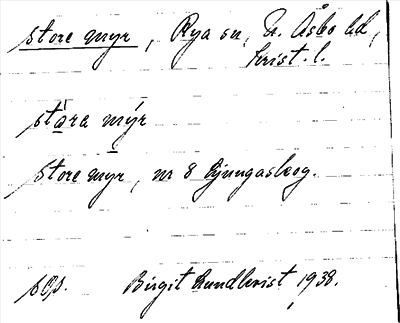 store myr, Rya sn, N. Åsbo hd,
Krist. l.
stòra mýr
store myr, nr 8 Ljungaskog.
sgs. Birgit Lundkvist 1938.